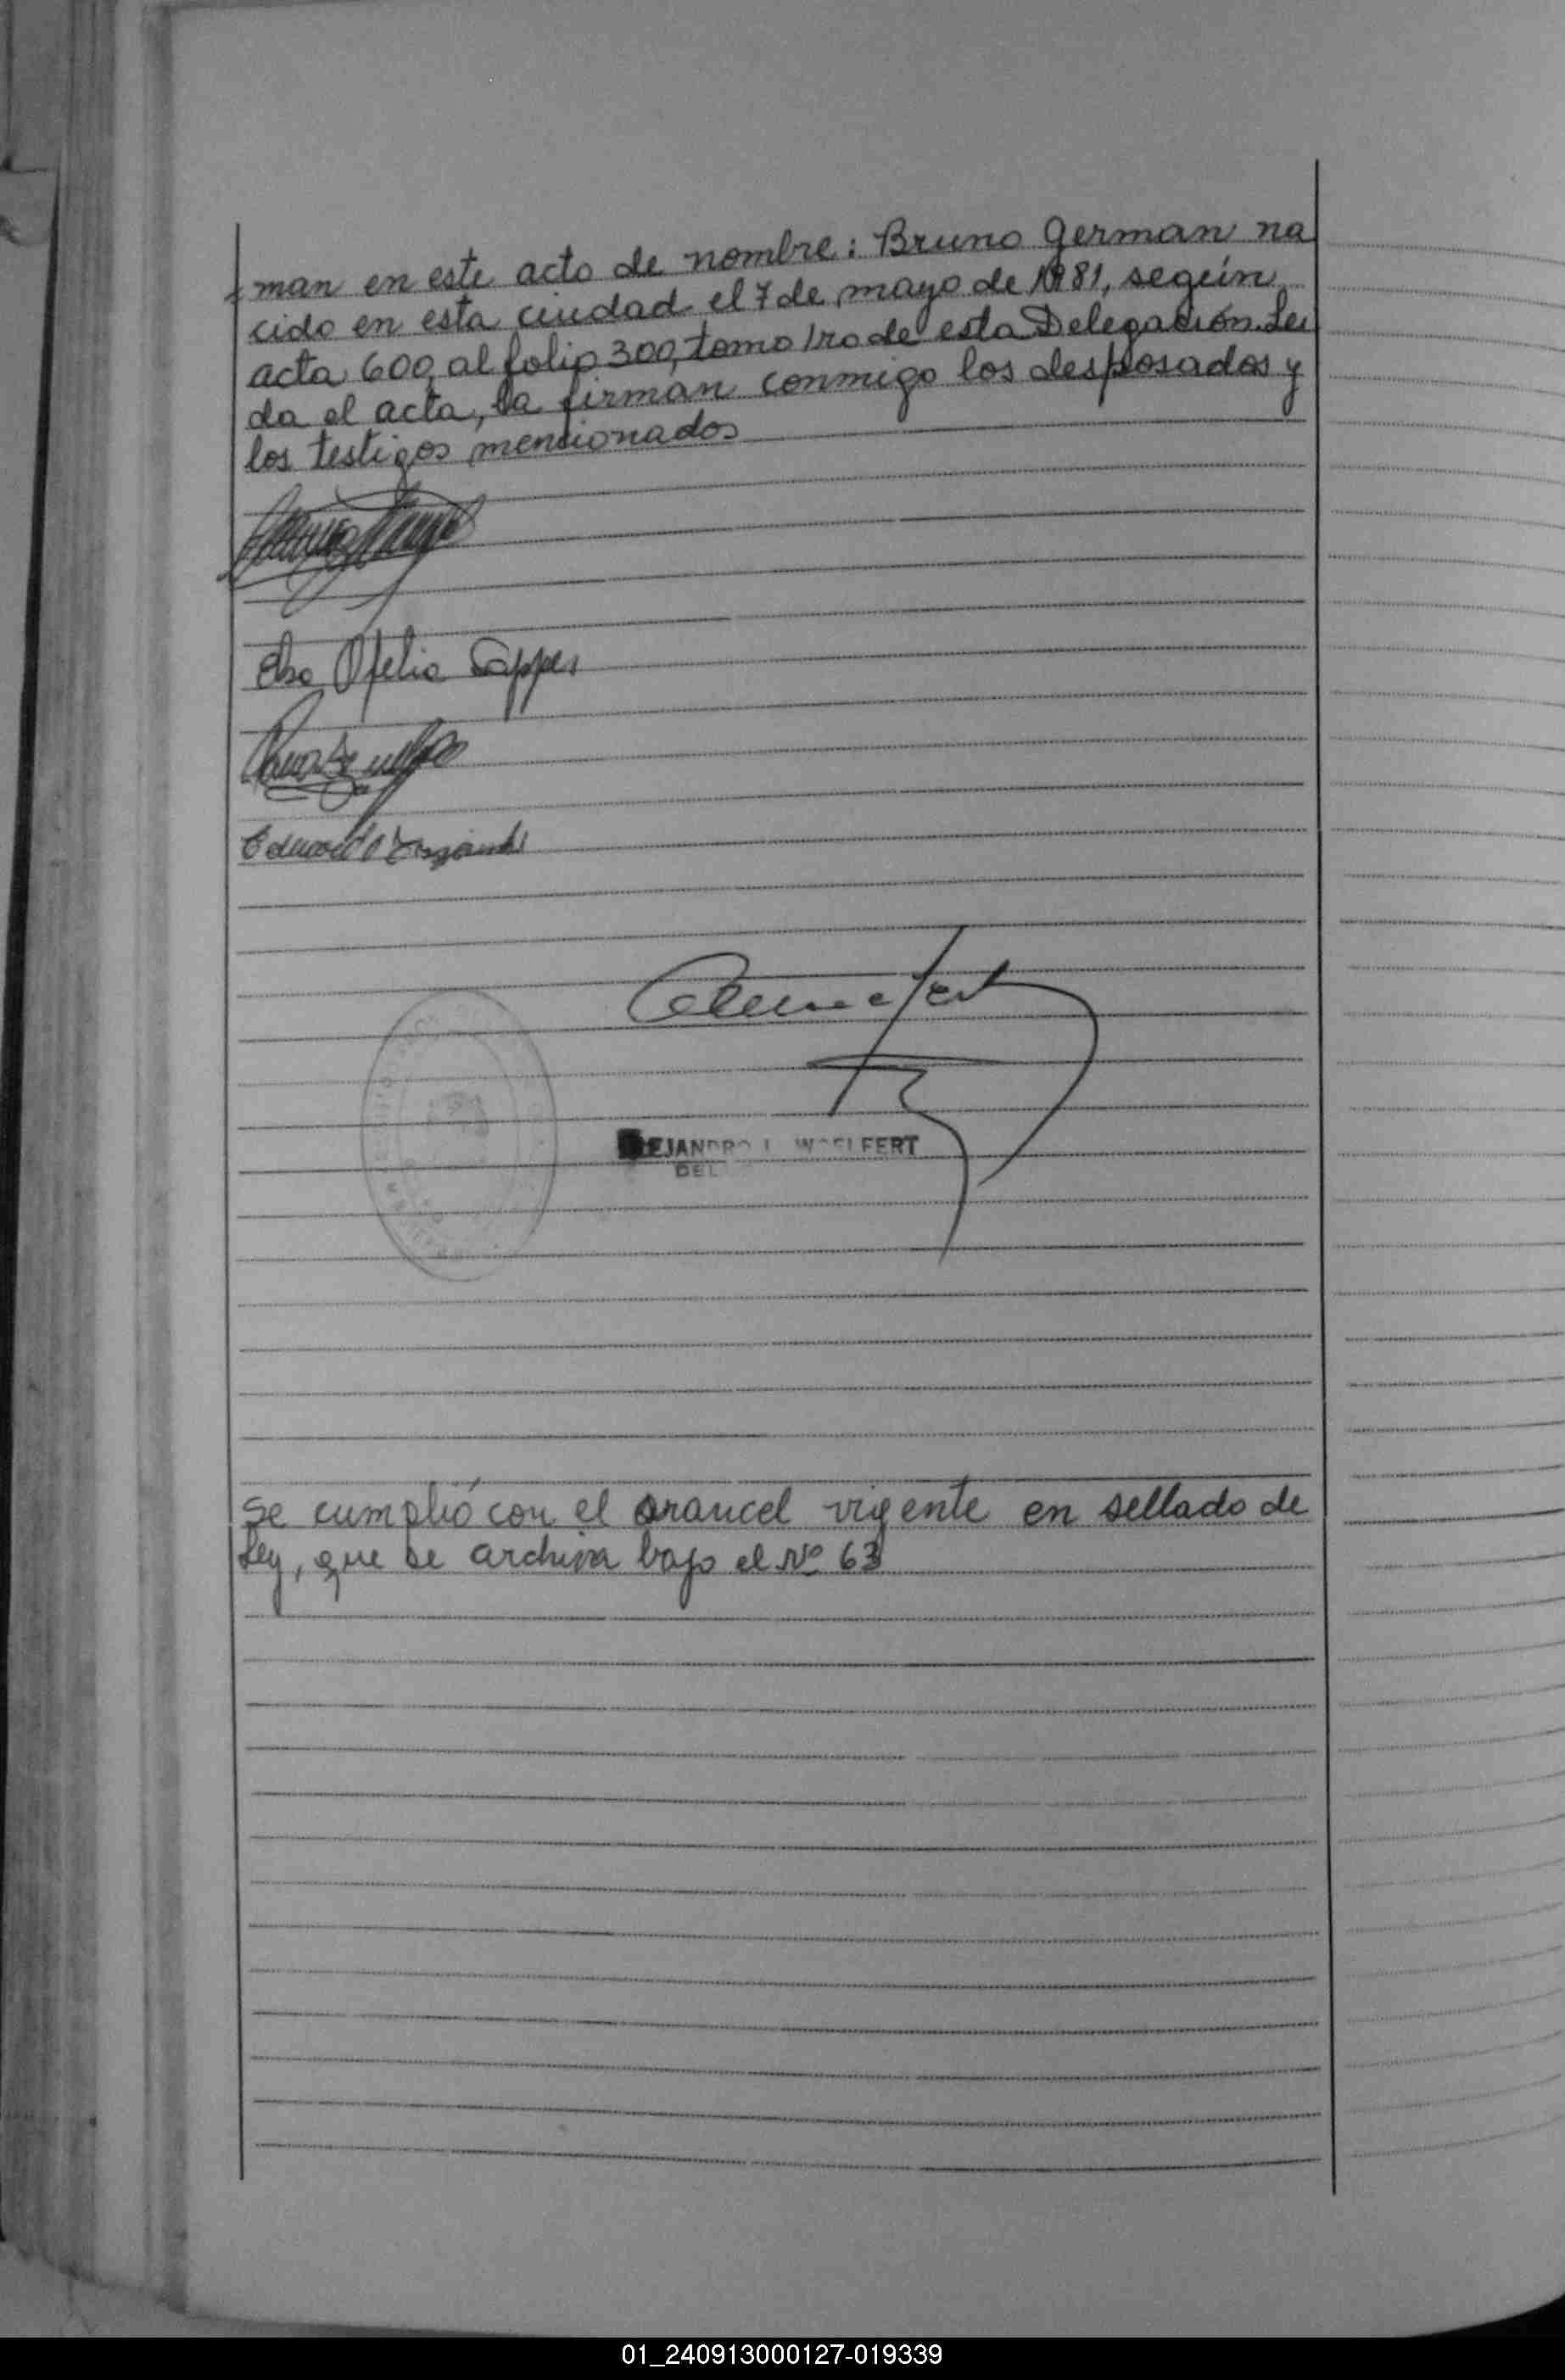 man en este acto de nombre: Bruno German na
cido en esta ciudad el 7 de mayo de 1981, según
acta 600, al folio 300, tomo 1ro de esta Delegación. Lei
da el acta, la firman conmigo los desposados y
los testigos mencionados
Elsa Ofelia
Eduardo
EJANDRO L. WOELFERT
DEL
Se cumplió con el arancel vigente en sellado de
Ley, que se archiva bajo el Nº 63
01_240913000127-019339